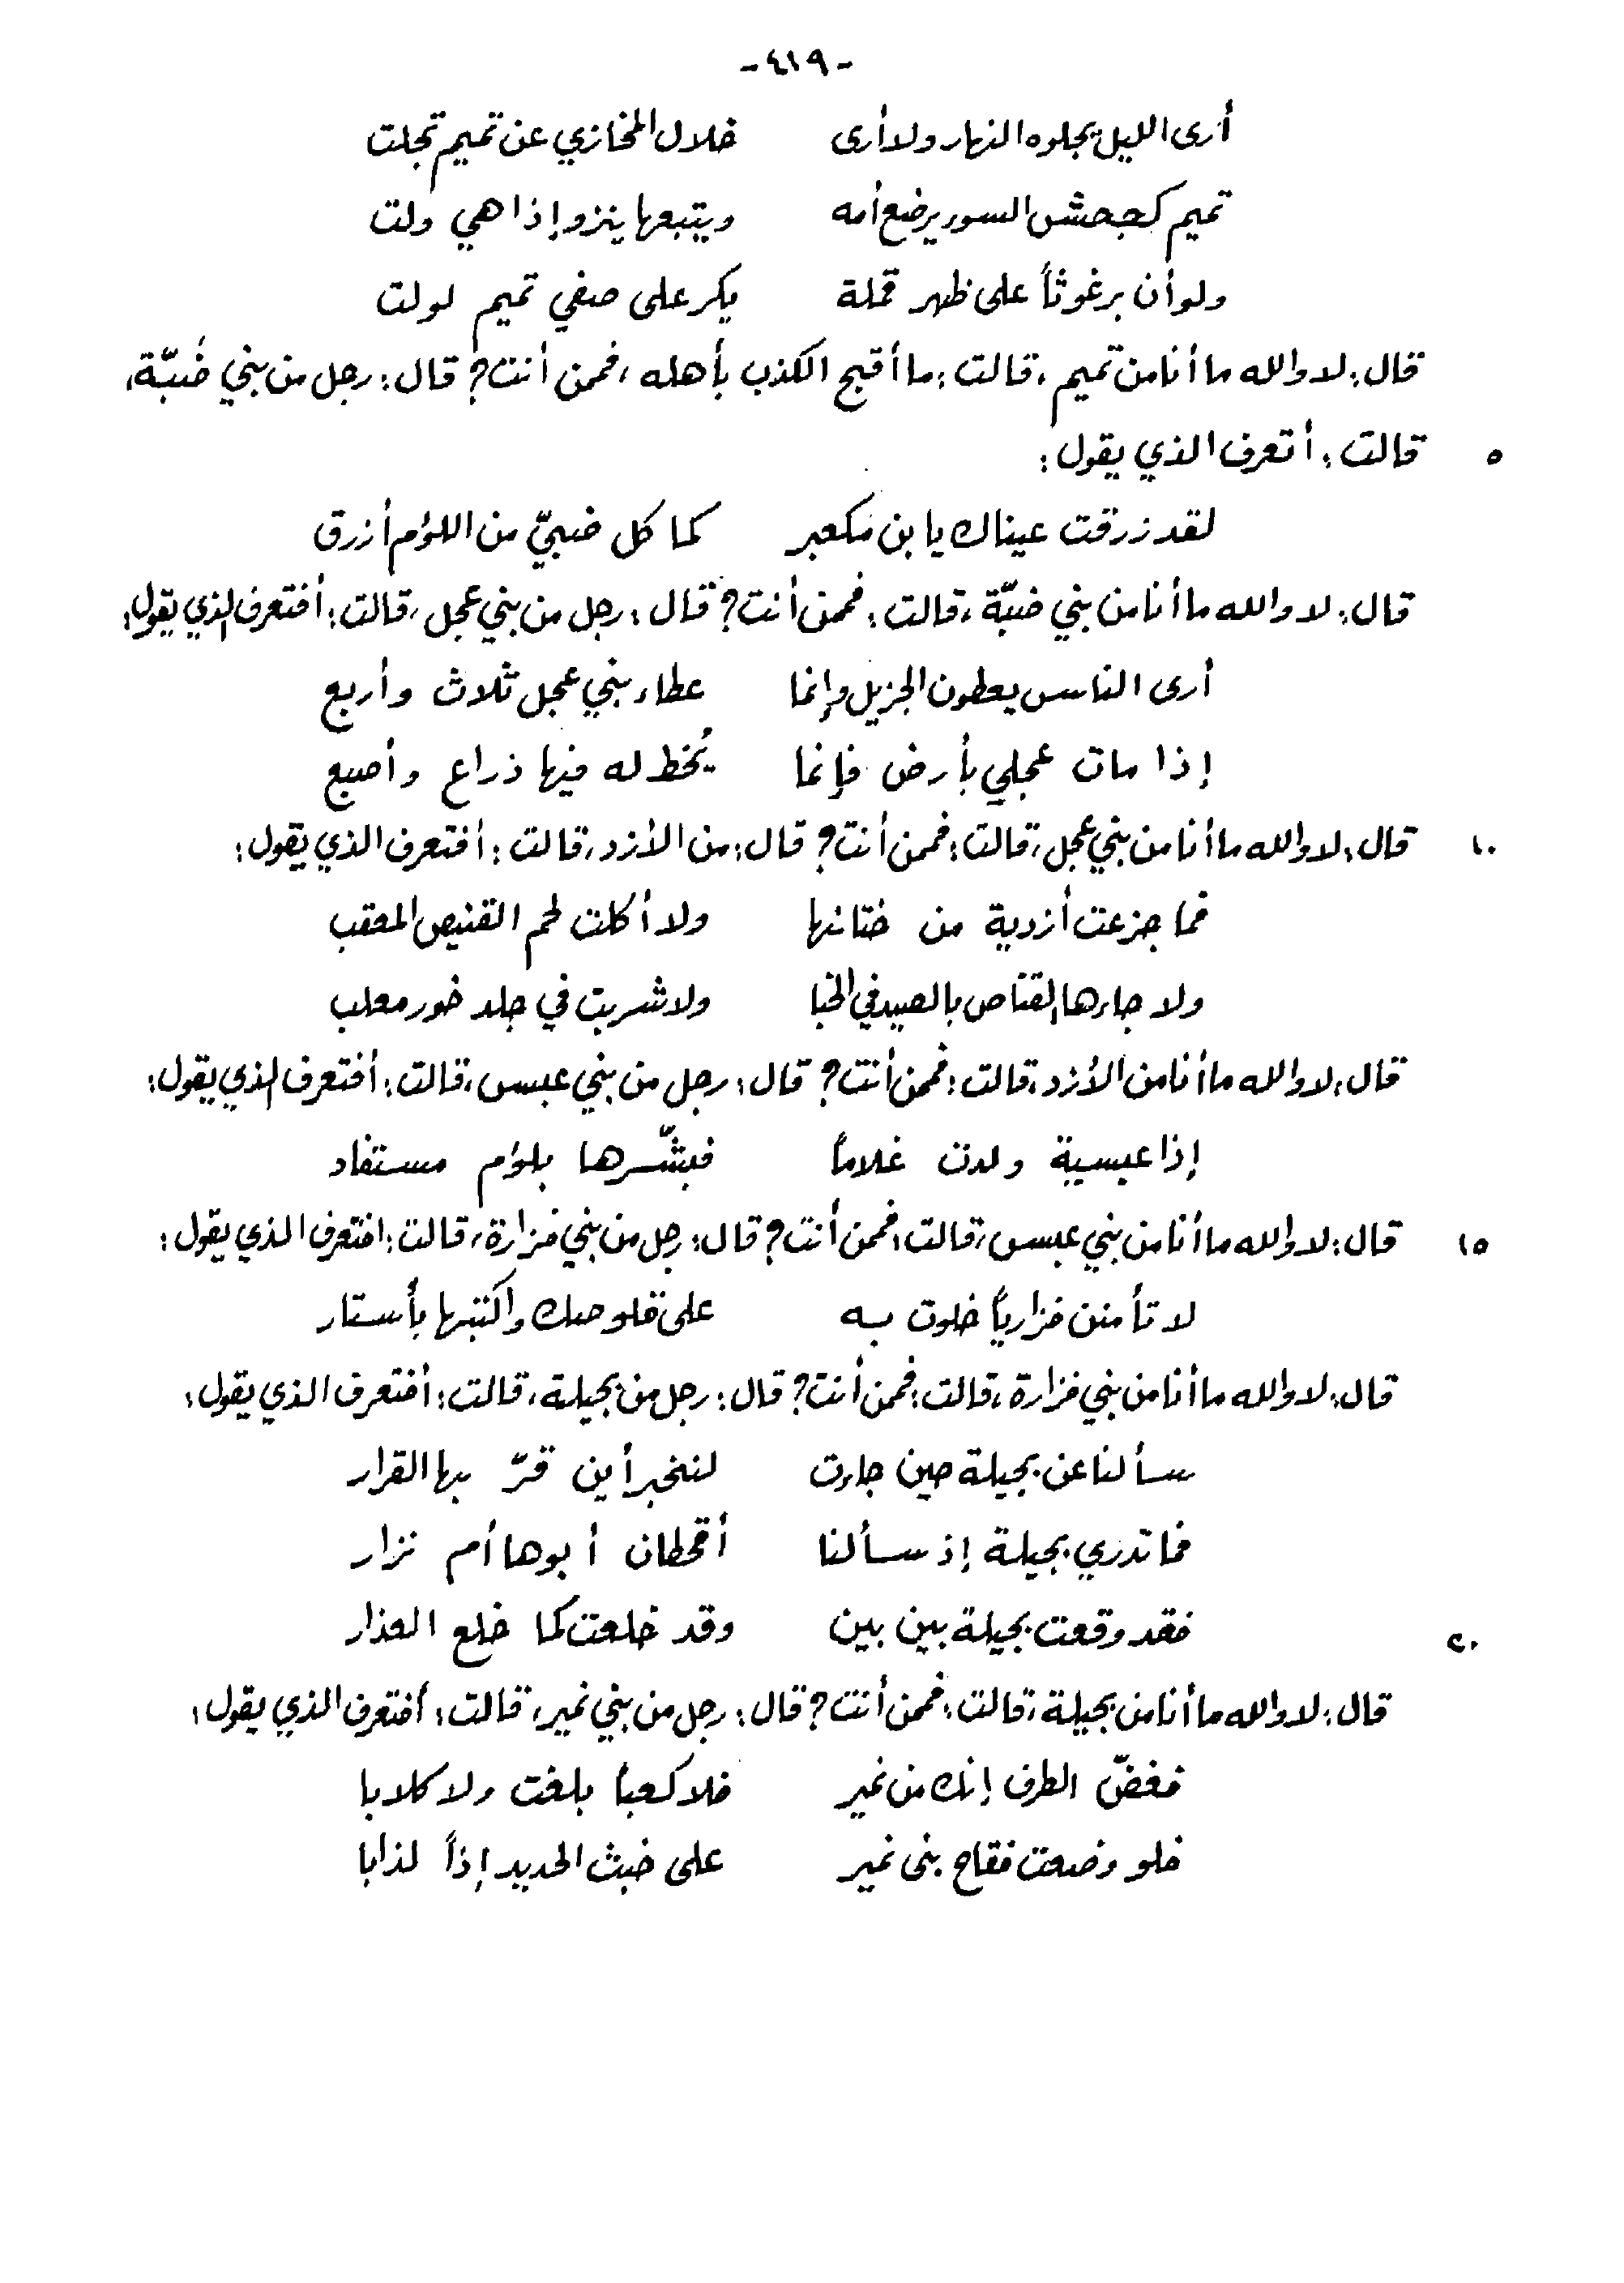 -٤١٩-
أرى الليل يجلوه النهار ولا أرى خلال المخازي عن تميم تجلت
تميم كجحش السور يرضع أمه ويتبعها ينزو إذا هي ولت
ولو أن برغوثاً على ظهر قملة يكر على صفي تميم لولت
قال: لا والله ما أنا من تميم، قالت: ما أقبح الكذب بأهله، فممن أنت؟ قال: رجل من بني ضُبّة،
٥ قالت: أتعرف الذي يقول:
لقد زرقت عيناك يا بن مكعبر كما كل ضبيّ من اللؤم أزرق
قال: لا والله ما أنا من بني ضبّة، قالت: فممن أنت؟ قال: رجل من بني عجل، قالت: أفتعرف الذي يقول:
أرى الناس يعطون الجزيل وإنما عطاء بني عجل ثلاث وأربع
إذا مات عجلي بأرض فإنما يُخط له فيها ذراع وأصبع
١٠ قال: لا والله ما أنا من بني عجل، قالت: فممن أنت؟ قال: من الأزد، قالت: أفتعرف الذي يقول:
فما جزعت أزدية من ختانها ولا أكلت لحم القنيص المعقب
ولا جاءها القناص بالصيد في الخبا ولا شربت في جلد خور معلب
قال: لا والله ما أنا من الأزد، قالت: فممن أنت؟ قال: رجل من بني عبس، قالت: أفتعرف الذي يقول:
إذا عبسية ولدت غلاماً فبشّرها بلؤم مستفاد
١٥ قال: لا والله ما أنا من بني عبس، قالت: فممن أنت؟ قال: رجل من بني فزارة، قالت: افتعرف الذي يقول:
لا تأمنن فزارياً خلوت به على قلوصك واكتبها بأستار
قال: لا والله ما أنا من بني فزارة، قالت: فممن أنت؟ قال: رجل من بجيلة، قالت: أفتعرف الذي يقول:
سألنا عن بجيلة حين جاءت لنخبر أين قرّ بها القرار
فما تدري بجيلة إذ سألنا أقحطان أبوها أم نزار
٢٠ فقد وقعت بجيلة بين بين وقد خلعت كما خلع العذار
قال: لا والله ما أنا من بجيلة، قالت: فممن أنت؟ قال: رجل من بني نمير، قالت: أفتعرف الذي يقول:
فغضّ الطرف إنك من نمير فلا كعباً بلغت ولا كلابا
فلو وضعت فقاح بنى نمير على خبث الحديد إذاً لذابا